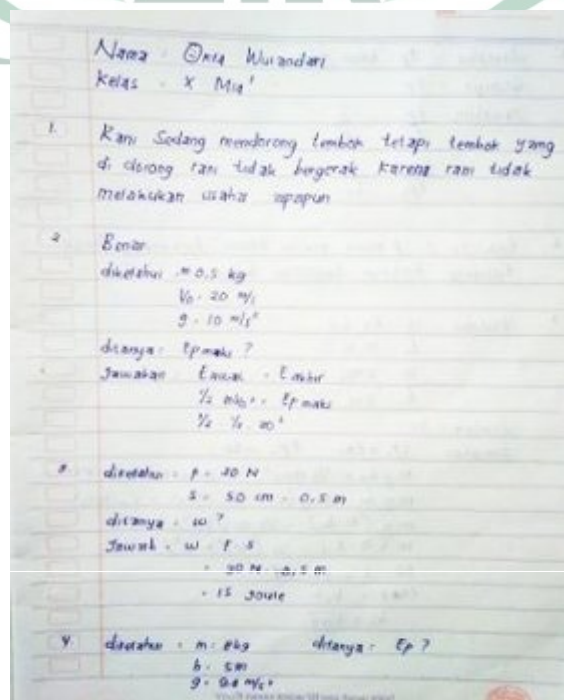 Nama : Onia Wurandari
Kelas : X Mia 1
1. Rani Sedang mendorong tembok tetapi tembok yang
di dorong rani tidak bergerak karena rani tidak
melakukan usaha apapun
2 Benar
diketahui m 0,5 kg
V0 . 20 m/s
g . 10 m/s²
ditanya : Ep maks ?
Jawaban E awal = E akhir
½ mv0² = Ep maks
20²
3 diketahui = F = 30 N
s = 50 cm = 0,5 m
ditanya = w ?
Jawab = w = F . s
= 30 N . 0,5 m
= 15 Joule
4. diketahui = m = 8kg ditanya = Ep ?
h = 5m
g =